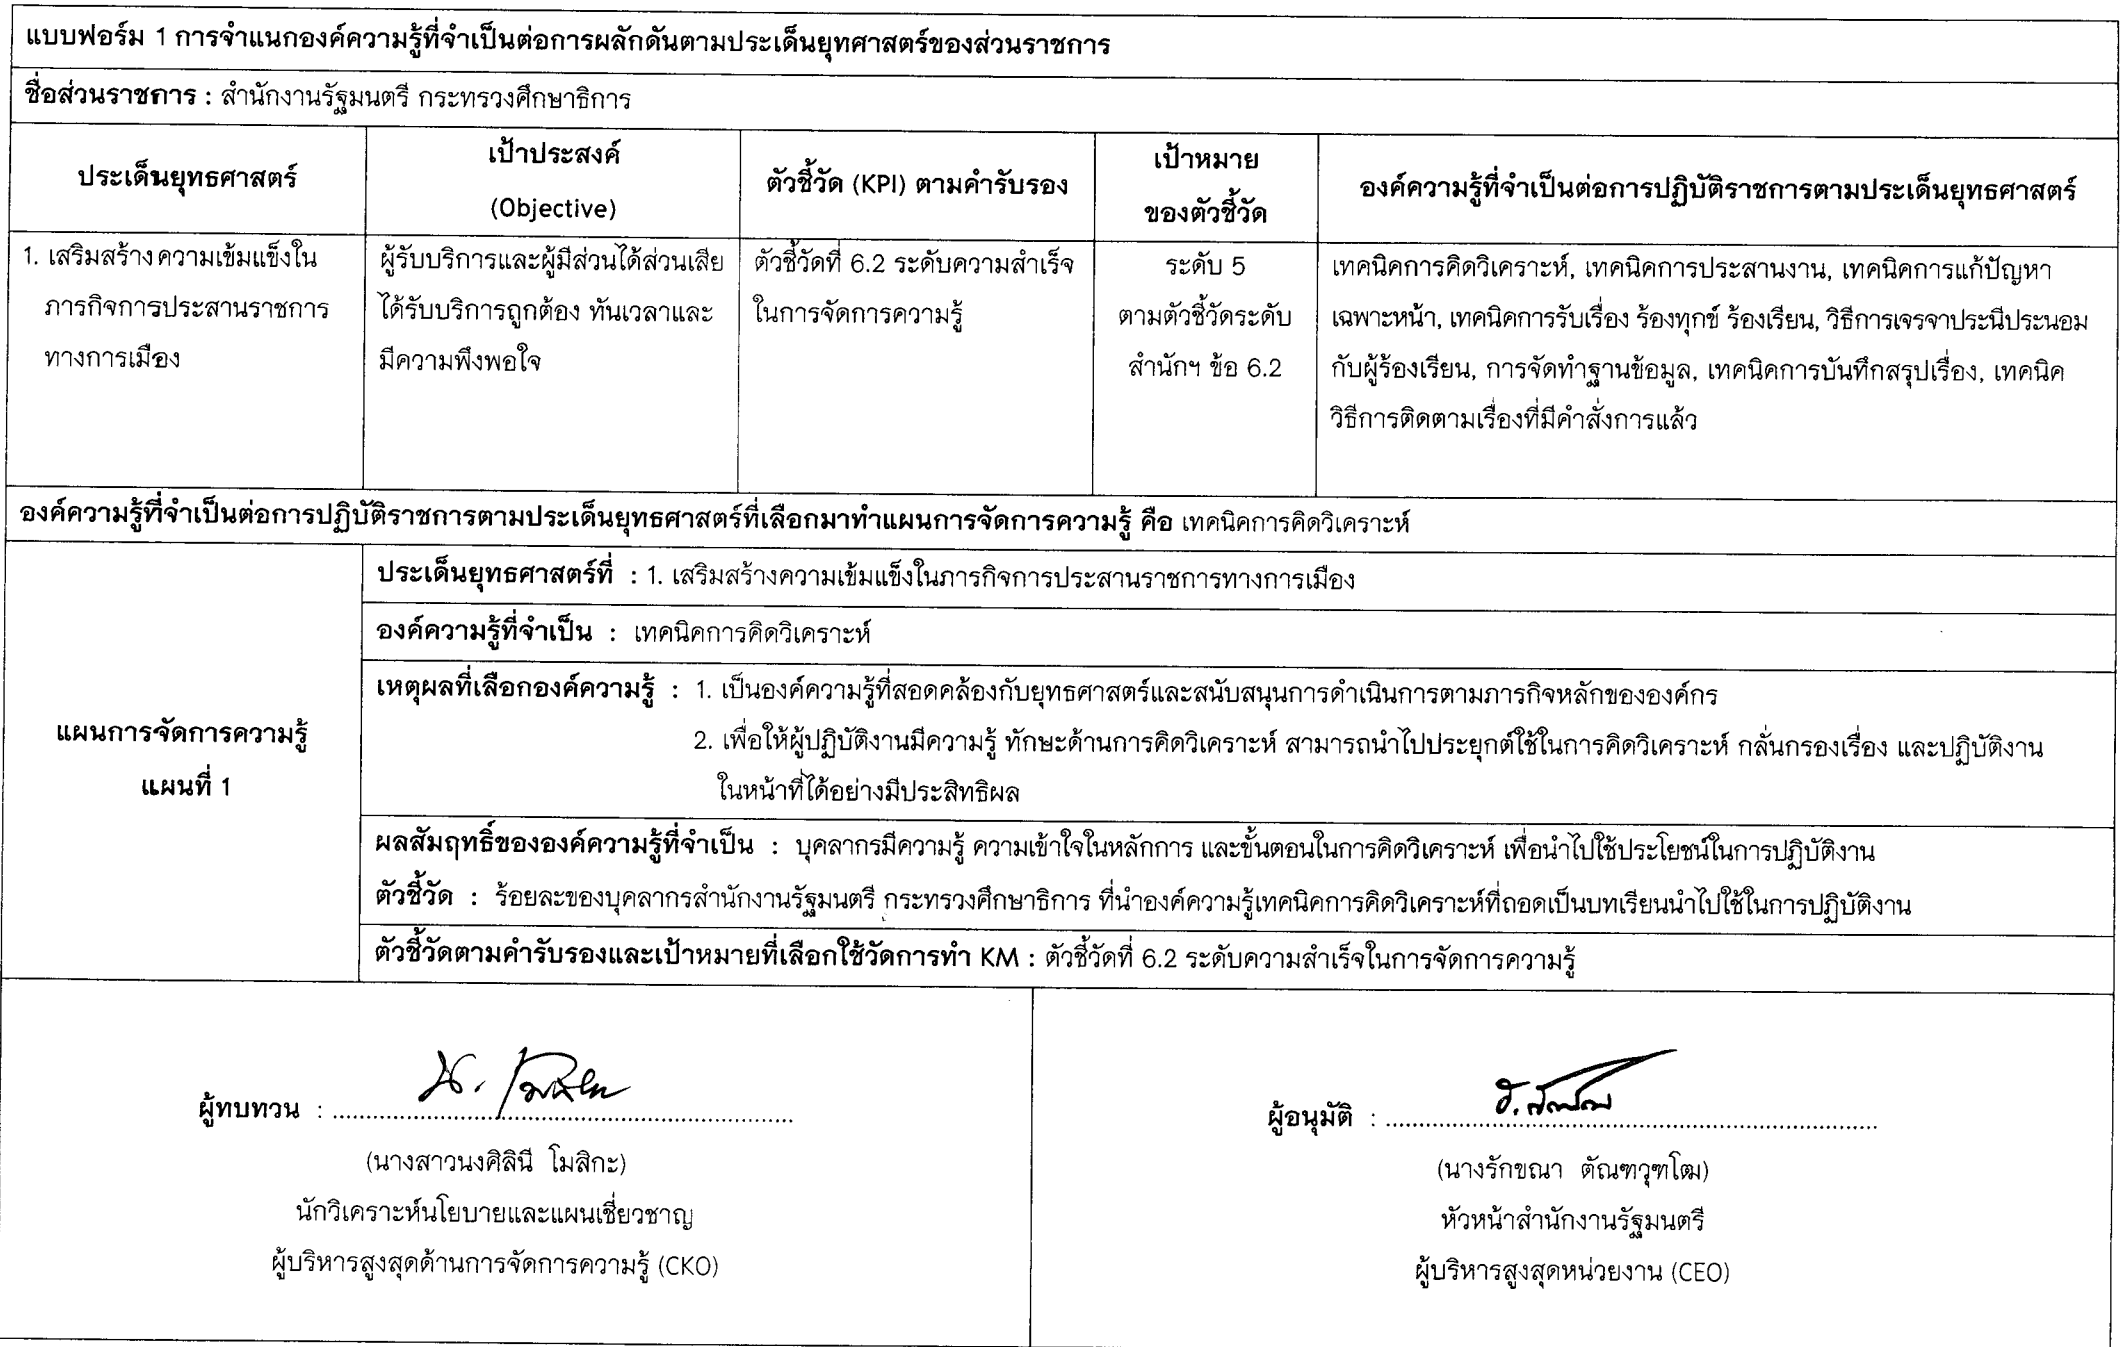 แบบฟอร์ม 1 การจำแนกองค์ความรู้ที่จำเป็นต่อการผลักดันตามประเด็นยุทศาสตร์ของส่วนราชการ
ชื่อส่วนราชการ : สำนักงานรัฐมนตรี กระทรวงศึกษาธิการ
ประเด็นยุทธศาสตร์
เป้าประสงค์
(Objective)
ตัวชี้วัด (KPI) ตามคำรับรอง
เป้าหมาย
ของตัวชี้วัด
องค์ความรู้ที่จำเป็นต่อการปฏิบัติราชการตามประเด็นยุทธศาสตร์
1. เสริมสร้างความเข้มแข็งใน
ภารกิจการประสานราชการ
ทางการเมือง
ผู้รับบริการและผู้มีส่วนได้ส่วนเสีย
ได้รับบริการถูกต้อง ทันเวลาและ
มีความพึงพอใจ
ตัวชี้วัดที่ 6.2 ระดับความสำเร็จ
ในการจัดการความรู้
ระดับ 5
ตามตัวชี้วัดระดับ
สำนักฯ ข้อ 6.2
เทคนิคการคิดวิเคราะห์, เทคนิคการประสานงาน, เทคนิคการแก้ปัญหา
เฉพาะหน้า, เทคนิคการรับเรื่อง ร้องทุกข์ ร้องเรียน, วิธีการเจรจาประนีประนอม
กับผู้ร้องเรียน, การจัดทำฐานข้อมูล, เทคนิคการบันทึกสรุปเรื่อง, เทคนิค
วิธีการติดตามเรื่องที่มีคำสั่งการแล้ว
องค์ความรู้ที่จำเป็นต่อการปฏิบัติราชการตามประเด็นยุทธศาสตร์ที่เลือกมาทำแผนการจัดการความรู้ คือ เทคนิคการคิดวิเคราะห์
แผนการจัดการความรู้
แผนที่ 1
ประเด็นยุทธศาสตร์ที่ : 1. เสริมสร้างความเข้มแข็งในภารกิจการประสานราชการทางการเมือง
องค์ความรู้ที่จำเป็น : เทคนิคการคิดวิเคราะห์
เหตุผลที่เลือกองค์ความรู้ : 1. เป็นองค์ความรู้ที่สอดคล้องกับยุทธศาสตร์และสนับสนุนการดำเนินการตามภารกิจหลักขององค์กร
2. เพื่อให้ผู้ปฏิบัติงานมีความรู้ ทักษะด้านการคิดวิเคราะห์ สามารถนำไปประยุกต์ใช้ในการคิดวิเคราะห์ กลั่นกรองเรื่อง และปฏิบัติงาน
ในหน้าที่ได้อย่างมีประสิทธิผล
ผลสัมฤทธิ์ขององค์ความรู้ที่จำเป็น : บุคลากรมีความรู้ ความเข้าใจในหลักการ และขั้นตอนในการคิดวิเคราะห์ เพื่อนำไปใช้ประโยชน์ในการปฏิบัติงาน
ตัวชี้วัด : ร้อยละของบุคลากรสำนักงานรัฐมนตรี กระทรวงศึกษาธิการ ที่นำองค์ความรู้เทคนิคการคิดวิเคราะห์ที่ถอดเป็นบทเรียนนำไปใช้ในการปฏิบัติงาน
ตัวชี้วัดตามคำรับรองและเป้าหมายที่เลือกใช้วัดการทำ KM : ตัวชี้วัดที่ 6.2 ระดับความสำเร็จในการจัดการความรู้
ผู้ทบทวน :
(นางสาวนงศิลินี โมสิกะ)
นักวิเคราะห์นโยบายและแผนเชี่ยวชาญ
ผู้บริหารสูงสุดด้านการจัดการความรู้ (CKO)
ผู้อนุมัติ :
(นางรักขณา ตัณฑวุฑโฒ)
หัวหน้าสำนักงานรัฐมนตรี
ผู้บริหารสูงสุดหน่วยงาน (CEO)